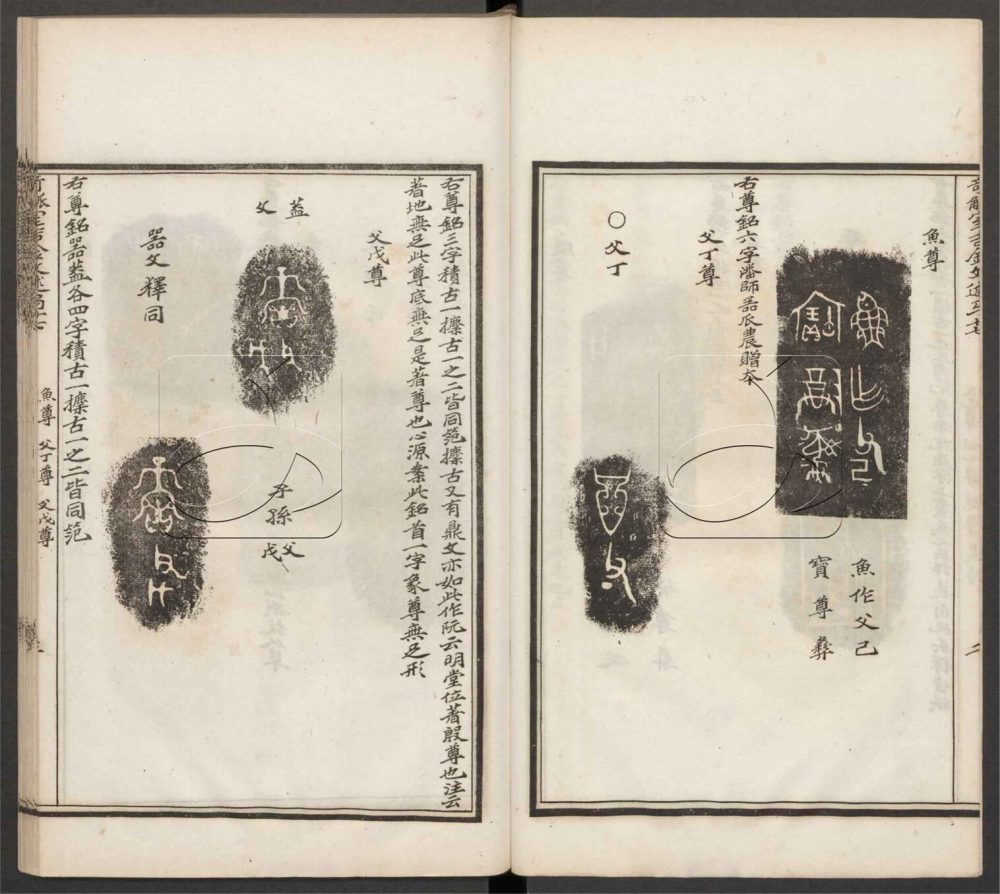 魚尊
魚作父己
寶尊彝
右尊銘六字潘師器辰農贈本
父丁尊
〇父丁
右尊銘三字積古一攈古一之二皆同笵攈古又有鼎文亦如此作阮云明堂位著殷尊也注云
著地無足此尊底無足是著尊也心源案此銘首一字象尊無足形
父戊尊
蓋文
子孫
父戊
器文 釋同
右尊銘器蓋各四字積古一攈古一之二皆同笵
魚尊 父丁尊 父戊尊